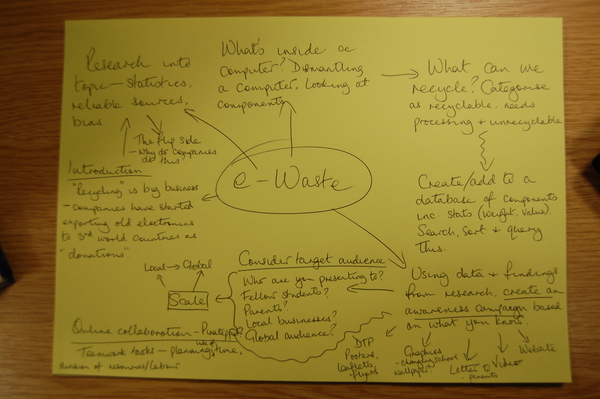 e-Waste
Research into
topic - statistics,
reliable sources,
bias
The flip side
- why do companies
do this?
Introduction
"Recycling" is big business
- companies have started
exporting old electronics
to 3rd world countries as
"donations".
What's inside a
computer? Dismantling
a computer, looking at
components
What can we
recycle? Categorise
as recyclable, needs
processing + unrecyclable
Create/add to a
database of components
inc. stats (weight, value).
Search, sort + query
this.
Using data + findings
from research, create an
awareness campaign based
on what you know.
DTP
Posters,
leaflets,
flyers
Graphics
- changing school
wallpapers
Letter to
parents
Video
Website
Consider target audience
Who are you presenting to?
Fellow students?
Parents?
Local businesses?
Global audience?
Scale
Local → Global
Online collaboration -
Teamwork tasks - planning, use of time,
division of resources/labour